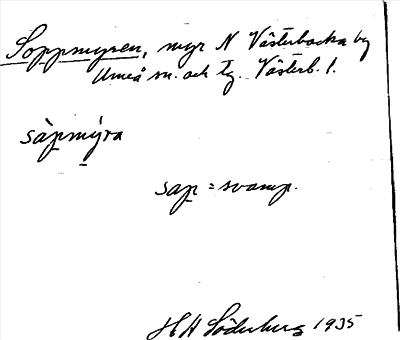 Soppmyren, myr N Västerbacka by
Umeå sn. och tg. Västerb. l.
såpmýra
sap = svamp.
H H Söderberg 1935